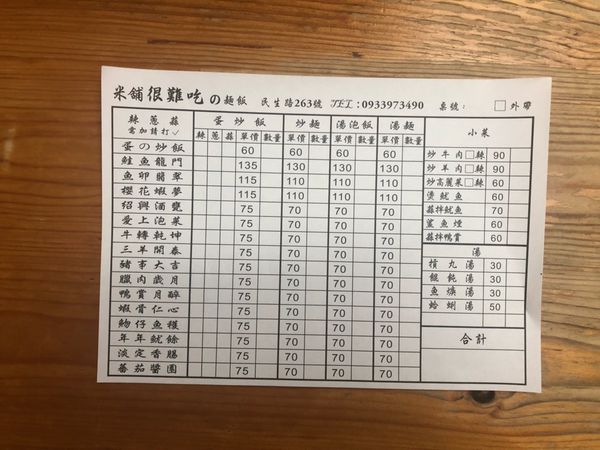 米舖很難吃の麵飯 民生路263號 TEL:0933973490 桌號: □外帶
辣蔥蒜 蛋炒飯 炒麵 湯泡飯 湯麵 小菜
需加請打✓ 辣 蔥 蒜 單價 數量 單價 數量 單價 數量 單價 數量
蛋の炒飯 60 60 60 60
鮭魚龍門 135 130 130 130
魚卵翡翠 115 110 110 110
櫻花蝦夢 115 110 110 110
紹興酒甕 75 70 70 70
愛上泡菜 75 70 70 70
牛轉乾坤 75 70 70 70
三羊開泰 75 70 70 70
豬事大吉 75 70 70 70
臘肉歲月 75 70 70 70
鴨賞月醉 75 70 70 70
蝦膏仁心 75 70 70 70
魩仔魚穫 75 70 70 70
年年魷餘 75 70 70 70
淡定香腸 75 70 70 70
蕃茄醬園 75 70 70 70
炒牛肉□辣 90
炒羊肉□辣 90
炒高麗菜□辣 60
燙魷魚 60
蒜拌魷魚 70
鯊魚煙 60
蒜拌鴨賞 60
湯
摃丸湯 30
餛飩湯 30
魚焿湯 30
蛤蜊湯 50
合計